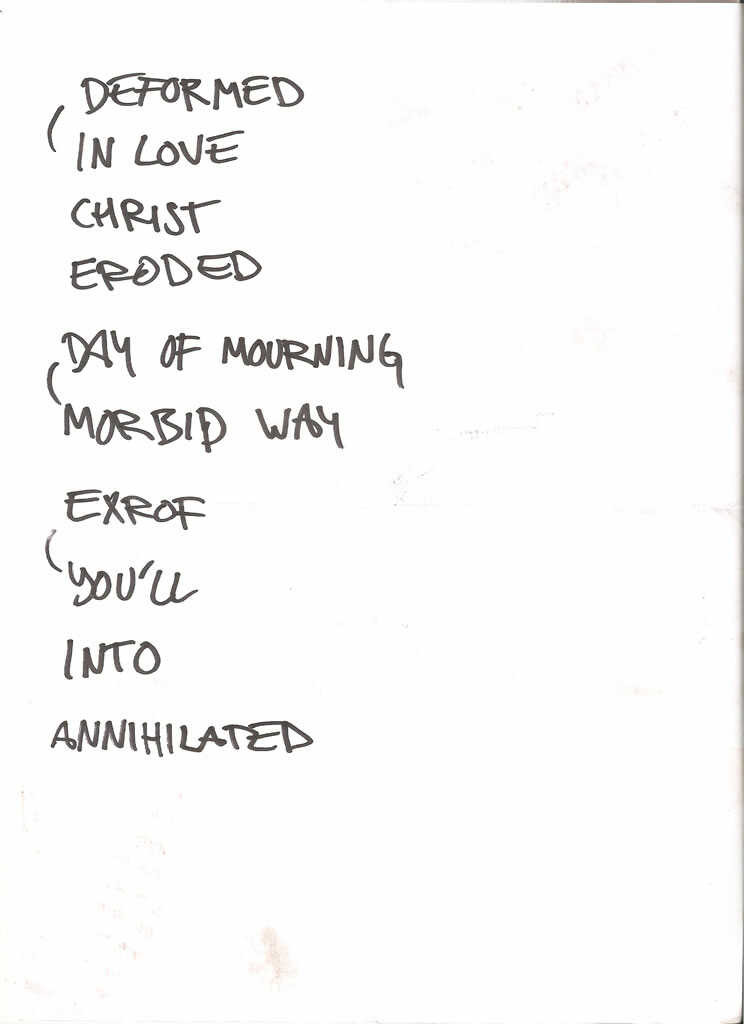 DEFORMED
IN LOVE
CHRIST
ERODED
DAY OF MOURNING
MORBID WAY
EXROF
YOU'LL
INTO
ANNIHILATED